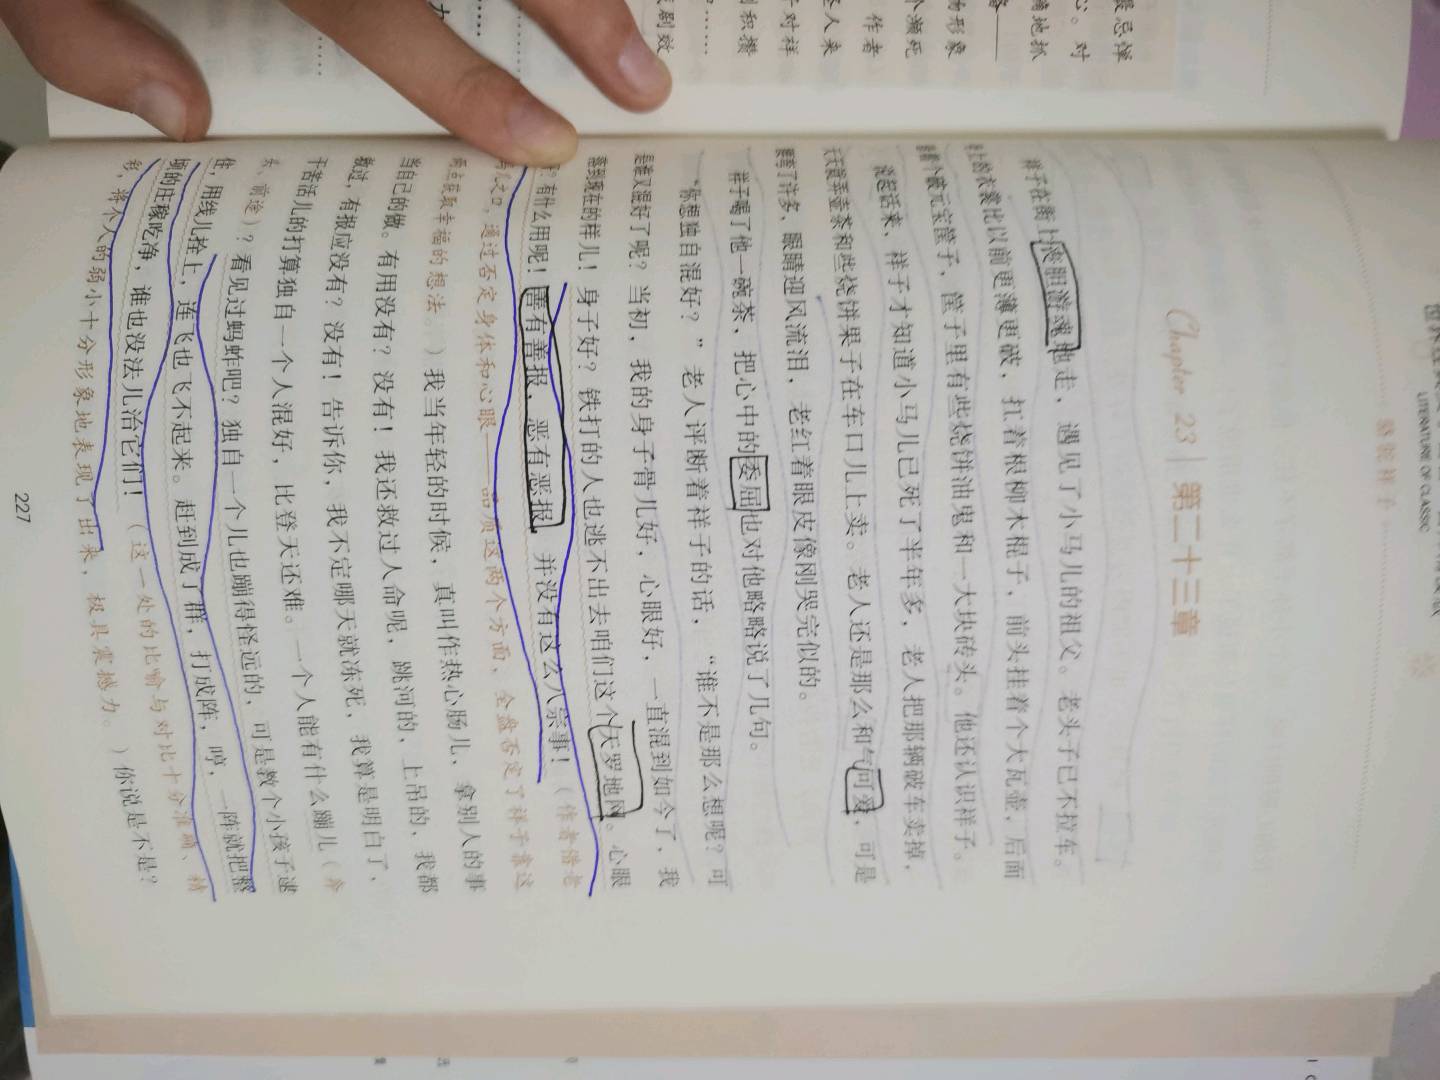 骆驼祥子
LITERATURE OF CLASSIC
Chapter 23 | 第二十三章
祥子在街上丧胆游魂地走，遇见了小马儿的祖父。老头子已不拉车。
身上的衣裳比以前更薄更破，扛着根柳木棍子，前头挂着个大瓦壶，后面
个破元宝筐子，筐子里有些烧饼油鬼和一大块砖头。他还认识祥子。
说起话来，祥子才知道小马儿已死了半年多，老人把那辆破车卖掉，
天天就弄壶茶和些烧饼果子在车口儿上卖。老人还是那么和气可爱，可是
了许多，眼睛迎风流泪，老红着眼皮像刚哭完似的。
祥子喝了他一碗茶，把心中的委屈也对他略略说了几句。
“你想独自混好？”老人评断着祥子的话，“谁不是那么想呢？可
是谁又混好了呢？当初，我的身子骨儿好，心眼好，一直混到如今了，我
落到现在的样儿！身子好？铁打的人也逃不出去咱们这个天罗地网。心眼
？有什么用呢！善有善报，恶有恶报，并没有这么八宗事！（作者借老
之口，通过否定身体和心眼——品质这两个方面，全盘否定了祥子靠这
两点获取幸福的想法。）我当年轻的时候，真叫作热心肠儿，拿别人的事
当自己的做。有用没有？没有！我还救过人命呢，跳河的，上吊的，我都
救过，有报应没有？没有！告诉你，我不定哪天就冻死，我算是明白了，
干苦活儿的打算独自一个人混好，比登天还难。一个人能有什么蹦儿（奔
头，前途）？看见过蚂蚱吧？独自一个儿也蹦得怪远的，可是教个小孩子逮
住，用线儿拴上，连飞也飞不起来。赶到成了群，打成阵，哼，一阵就把整
顷的庄稼吃净，谁也没法儿治它们！（这一处的比喻与对比十分准确、精
彩，将个人的弱小十分形象地表现了出来，极具震撼力。）你说是不是？
227